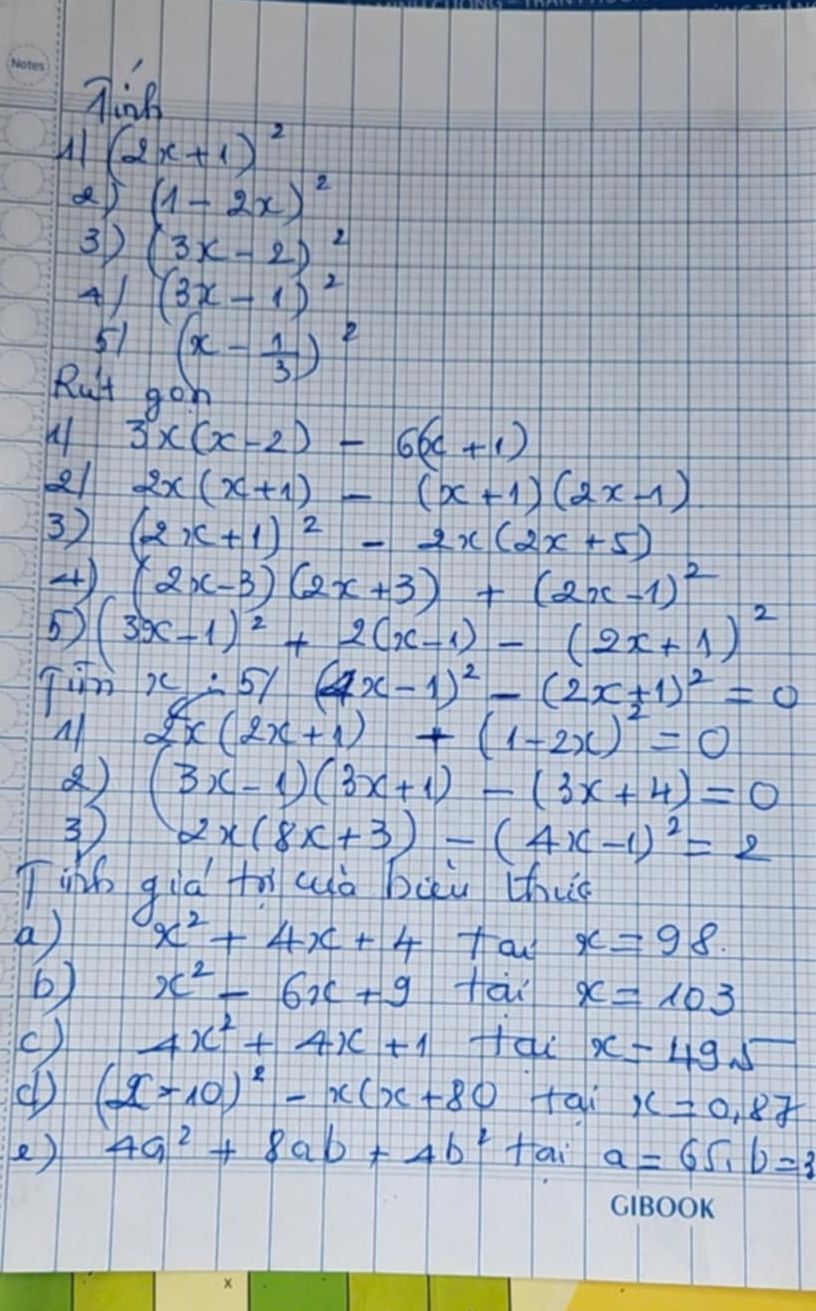 Notes
Tính
1) (2x+1)²
2) (1 - 2x)²
3) (3x - 2)²
4) (3x - 1)²
5) (x - 1/3)²
Rút gọn
1) 3x(x-2) - 6(x+1)
2) 2x(x+1) - (x+1)(2x-1)
3) (2x+1)² - 2x(2x+5)
4) (2x-3)(2x+3) + (2x-1)²
5) (3x-1)² + 2(x-1) - (2x+1)²
Tìm x : 5) (4x-1)² - (2x+1)² = 0
1) 2x(2x+1) + (1-2x)² = 0
2) (3x-1)(3x+1) - (3x+4) = 0
3) 2x(8x+3) - (4x-1)² = 2
Tính giá trị của biểu thức
a) x² + 4x + 4 tại x = 98.
b) x² - 6x + 9 tại x = 103
c) 4x² + 4x + 1 tại x = 49,5
d) (x-10)² - x(x+80 tại x = 0,87
e) 4a² + 8ab + 4b² tại a = 65, b = 3
GIBOOK
x